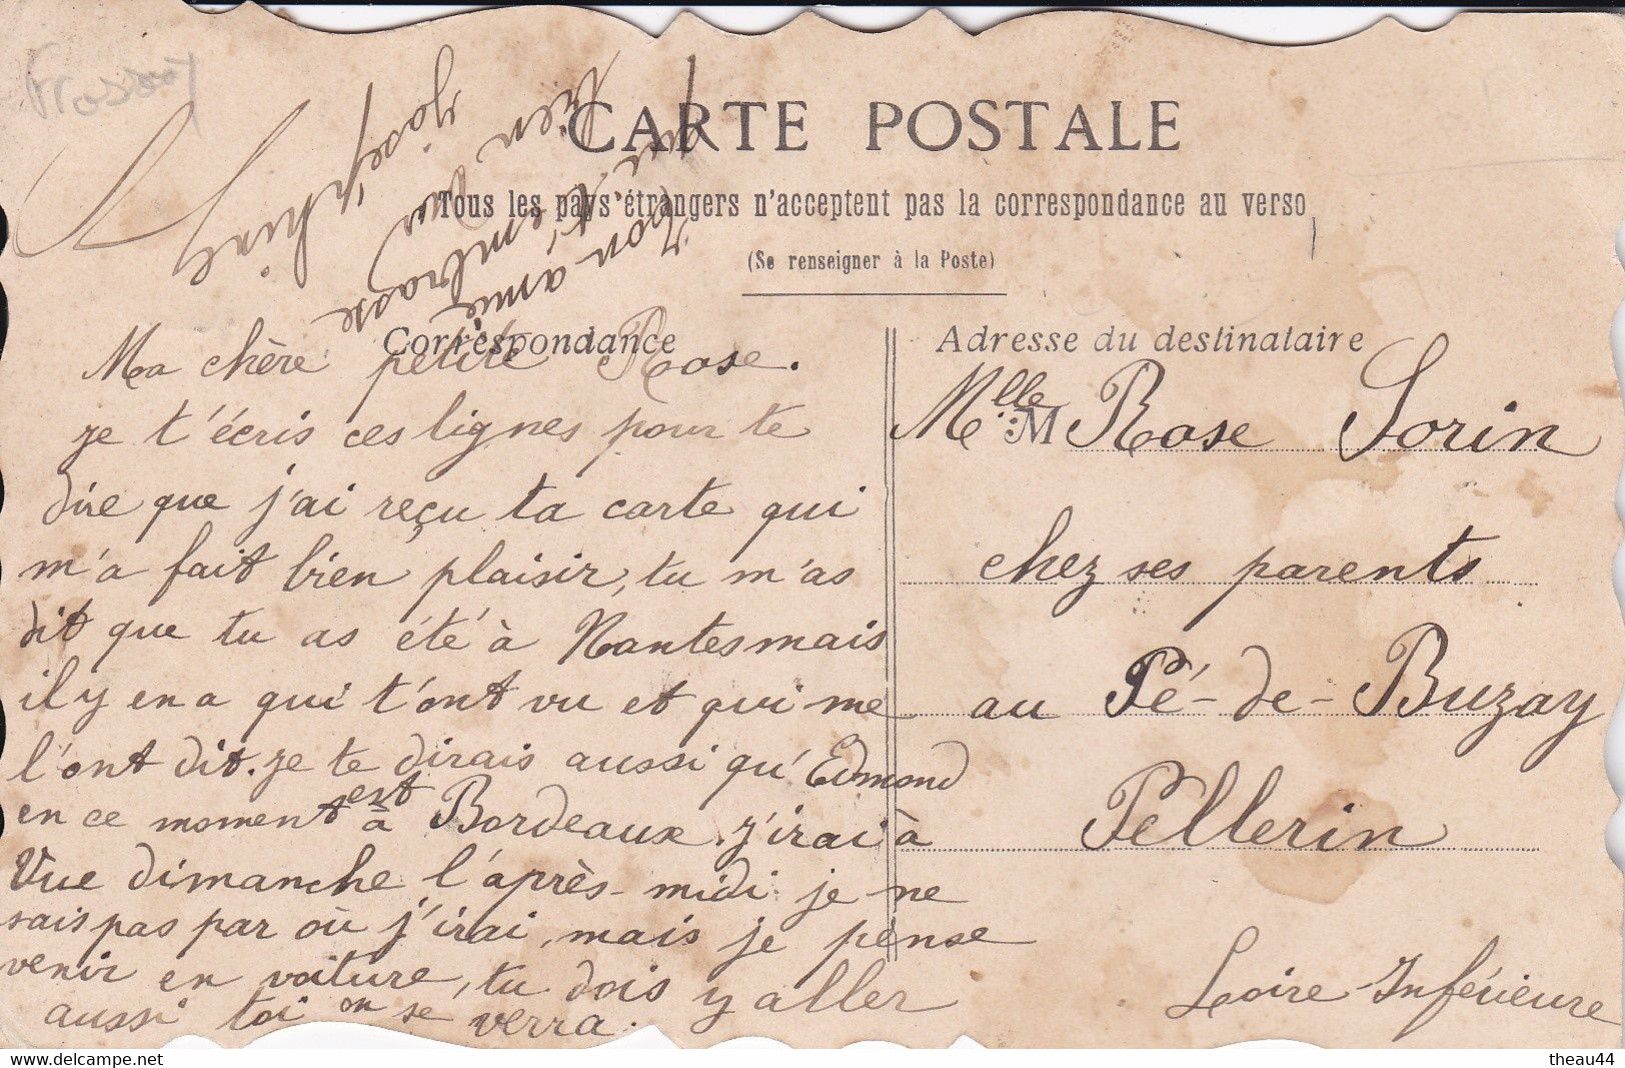 Frossay
CARTE POSTALE
Tous les pays étrangers n'acceptent pas la correspondance au verso
(Se renseigner à la Poste)
Correspondance
Ma chère petite Rose.
je t'écris ces lignes pour te
dire que j'ai reçu ta carte qui
m'a fait bien plaisir, tu m'as
dit que tu as été à Nantes mais
il y en a qui t'ont vu et qui me
l'ont dit. je te dirais aussi qu'Edmond
en ce moment est à Bordeaux. j'irai à
Vue dimanche l'après-midi je ne
sais pas par où j'irai, mais je pense
venir en voiture, tu dois y aller
aussi toi on se verra.
Ton amie
qui t'embrasse
bien fort
Joséphine
Adresse du destinataire
M
Mlle Rose Sorin
chez ses parents
au Pé-de-Buzay
Pellerin
Loire-Inférieure
delcampe.net
theau44